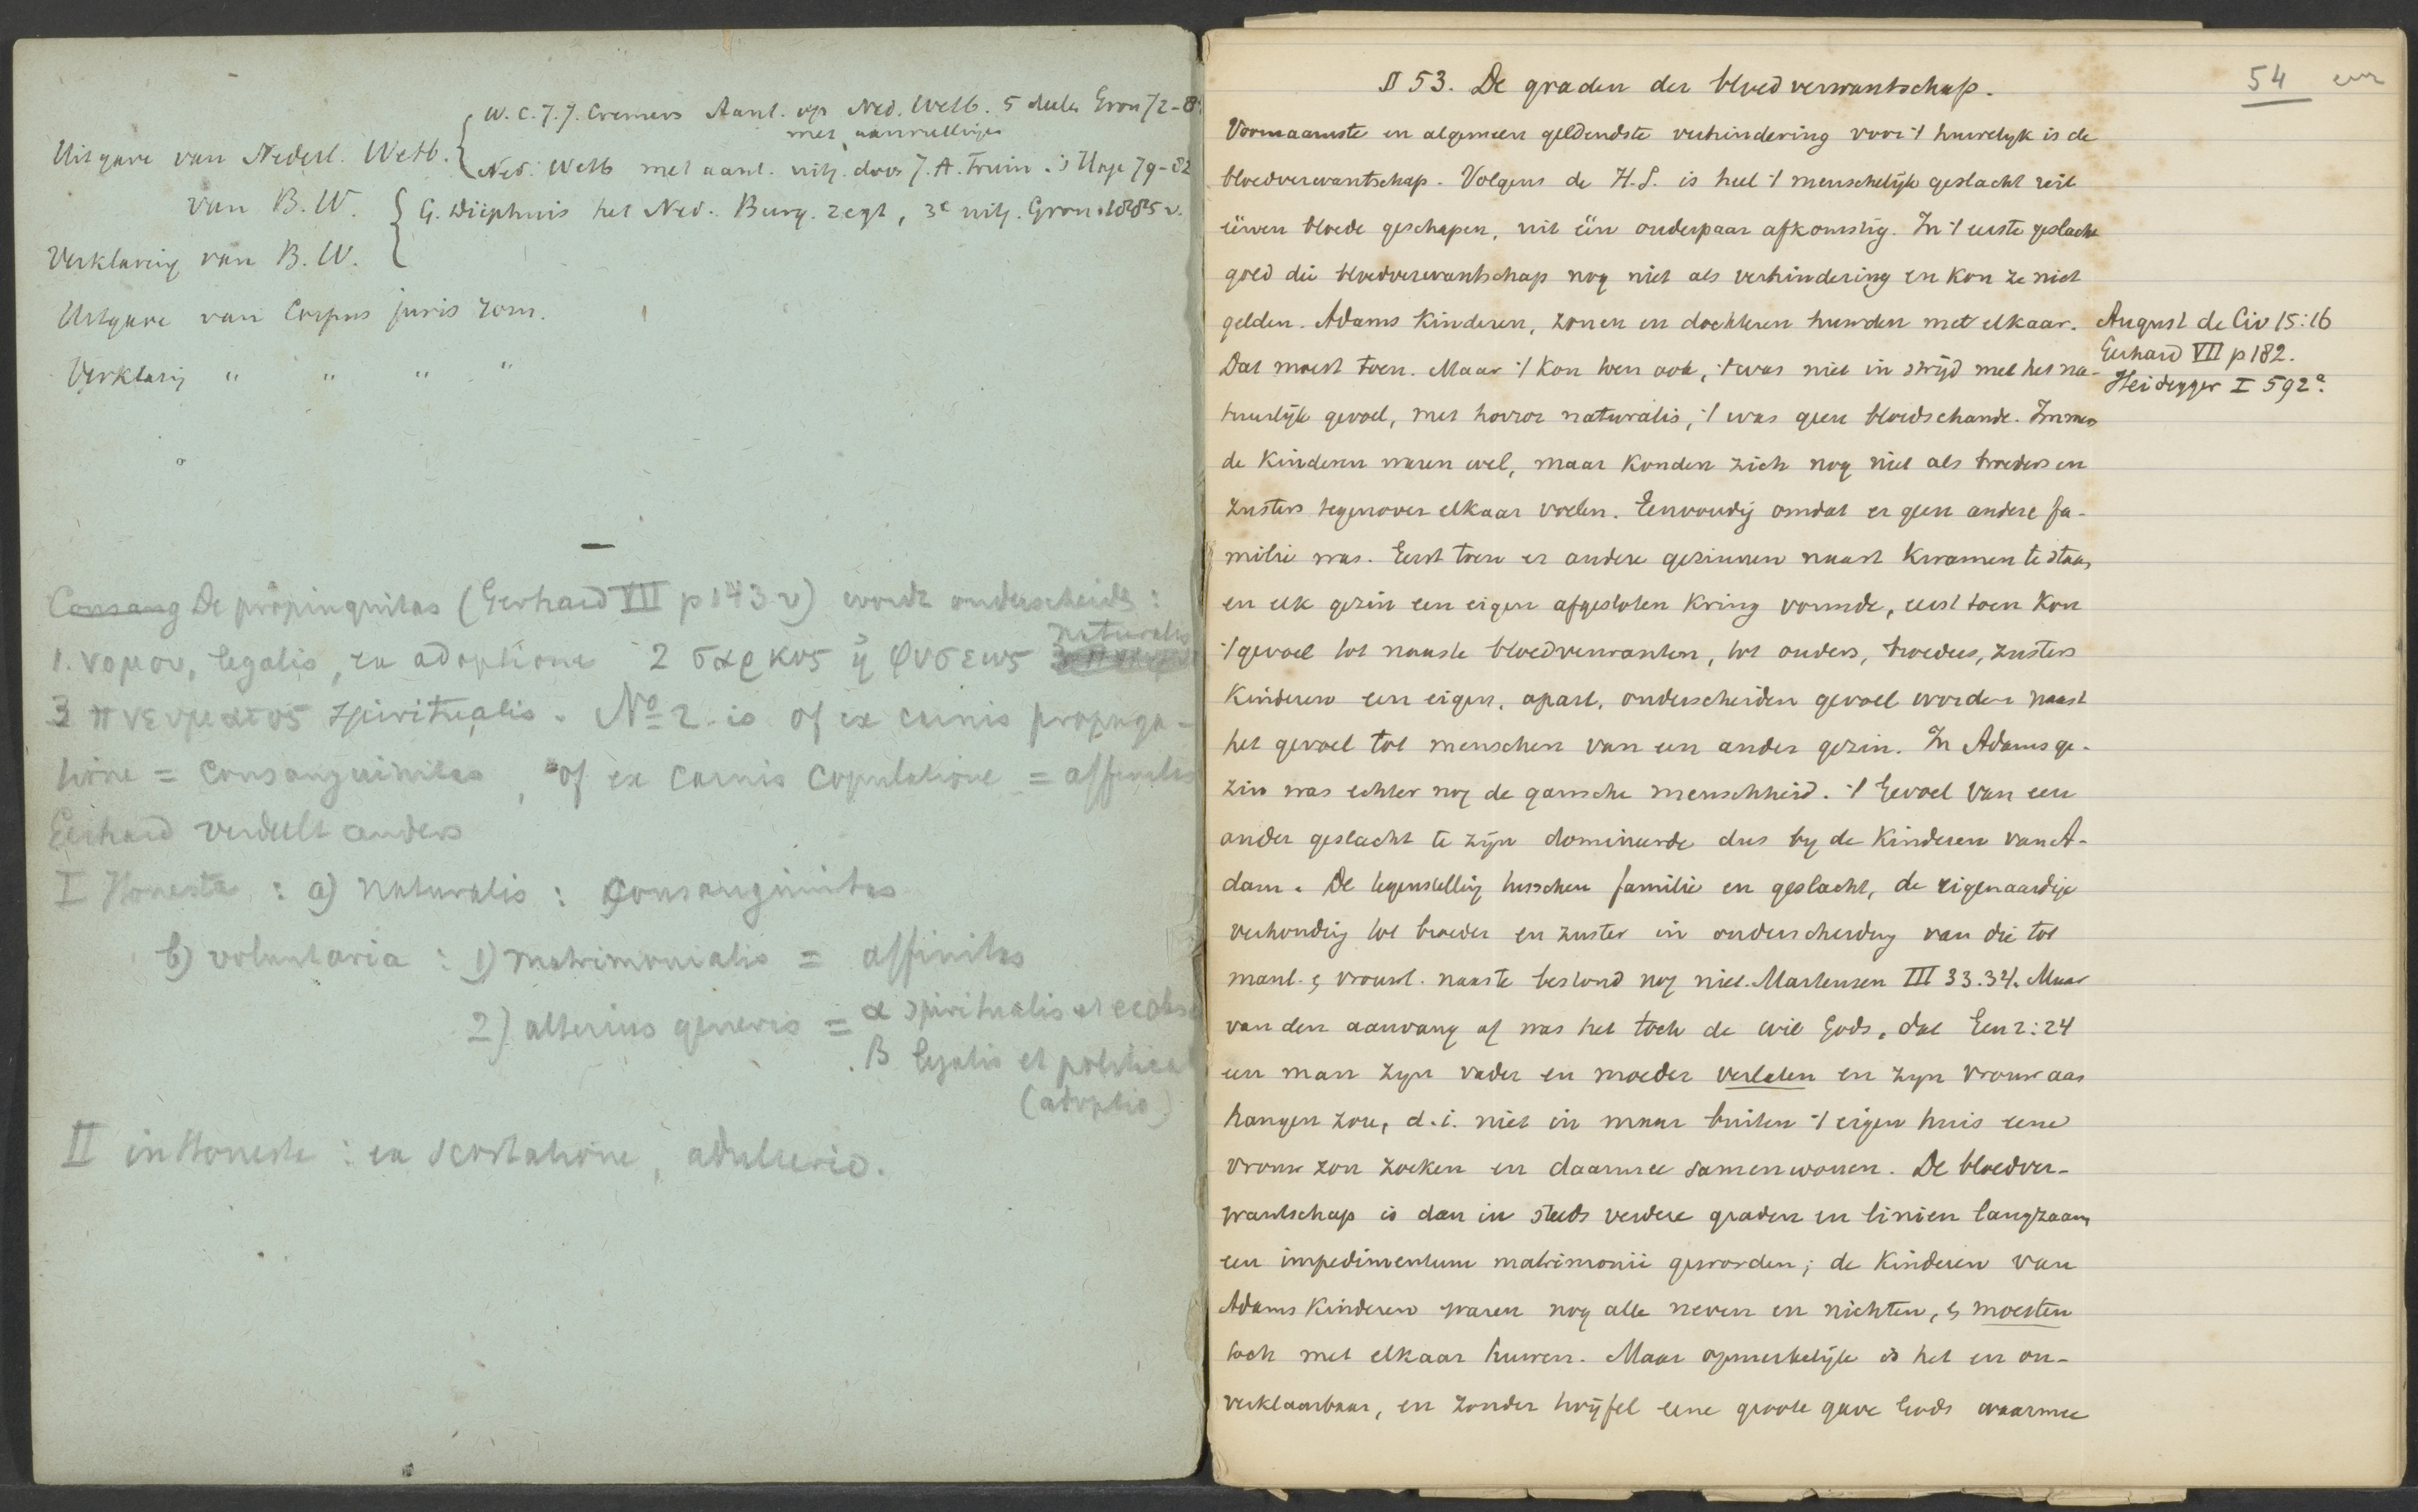 W. C. J. J. Cremers Aant. op Ned. Wetb. 5 deelen Gron 72-8
met aanvullingen
Uitgave van Nederl. Wetb.
Ned. Wetb met aant. uitg. door J. A. Fruin. 's Hage 79-82
van B. W.
G. Diephuis het Ned. Burg. regt, 3e uitg. Gron. 1885 v.
Verklaring van B. W.
Uitgave van Corpus juris rom.
Verklarig " " " "
Consang De propinquitas (Gerhard VII p 143 v) wordt onderscheide :
naturalis
1. νομου, legalis, ex adoptione 2 σαρκος ἠ φυσεως
3 πνευματος spiritualis. No 2. is of ex carnis propaga-
tione = consanguinitas, of ex carnis copulatione = affinitas
Gerhard verdeelt anders
I Honesta : a) naturalis : consanguinitas
b) voluntaria : 1) matrimonialis = affinitas
2) alterius generis = α spiritualis et eccles
β legalis et politica
(adoptio)
II inhonesta : ex scortatione, adulterio.
54
§ 53. De graden der bloedverwantschap.
Voornaamste en algemeen geldendste verhindering voor 't huwelijk is de
bloedverwantschap. Volgens de H. S. is heel 't menschelijk geslacht uit
éénen bloede geschapen, uit één ouderpaar afkomstig. In 't eerste geslacht
gold die bloedverwantschap nog niet als verhindering en kon ze niet
gelden. Adams kinderen, zonen en dochteren huwden met elkaar.
August de Civ 15:16
Gerhard VII p 182.
Heidegger I 592a.
Dat moest toen. Maar 't kon toen ook, 't was niet in strijd met het na-
tuurlijk gevoel, met horror naturalis, 't was geen bloedschande. Immers
de kinderen waren wel, maar konden zich nog niet als broeders en
zusters tegenover elkaar voelen. Eenvoudig omdat er geen andere fa-
milie was. Eerst toen er andere gezinnen naast kwamen te staan
en elk gezin een eigen afgesloten kring vormde, eerst toen kon
't gevoel tot naaste bloedverwanten, tot ouders, broeders, zusters
kinderen een eigen, apart, onderscheiden gevoel worden naast
het gevoel tot menschen van een ander gezin. In Adams ge-
zin was echter nog de gansche menschheid. 't Gevoel van een
ander geslacht te zijn domineerde dus by de kinderen van A-
dam. De tegenstellig tusschen familie en geslacht, de eigenaardige
verhoudig tot broeder en zuster in onderscheidig van die tot
manl. & vrouwl. naaste bestond nog niet. Martensen III 33.34. Maar
van den aanvang af was het toch de wil Gods, dat Gen 2:24
een man zyn vader en moeder verlaten en zyn vrouw aan
hangen zou, d. i. niet in maar buiten 't eigen huis eene
vrouw zou zoeken en daarmee samenwonen. De bloedver-
wantschap is dan in steeds verdere graden en liniën langzaam
een impedimentum matrimonii geworden; de kinderen van
Adams kinderen waren nog alle neven en nichten, & moesten
toch met elkaar huwen. Maar opmerkelijk is het en on-
verklaarbaar, en zonder twijfel eene groote gave Gods waarmee